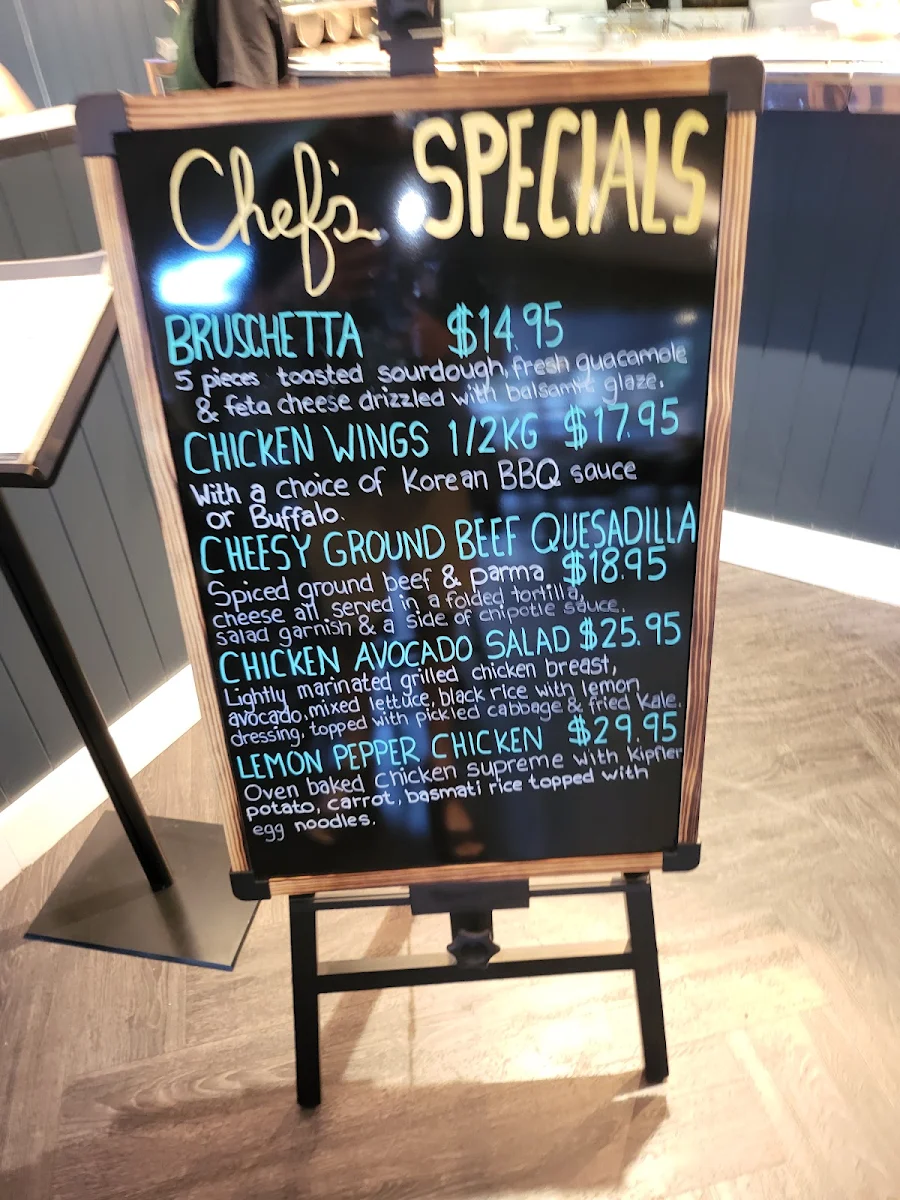 Chef's SPECIALS
BRUSCHETTA $14.95
5 pieces toasted sourdough, fresh guacamole
& feta cheese drizzled with balsamic glaze.
CHICKEN WINGS 1/2KG $17.95
With a choice of Korean BBQ sauce
or Buffalo.
CHEESY GROUND BEEF QUESADILLA
Spiced ground beef & parma $18.95
cheese all served in a folded tortilla,
salad garnish & a side of chipotle sauce.
CHICKEN AVOCADO SALAD $25.95
Lightly marinated grilled chicken breast,
avocado, mixed lettuce, black rice with lemon
dressing, topped with pickled cabbage & fried Kale.
LEMON PEPPER CHICKEN $29.95
Oven baked Chicken supreme with Kipfler
potato, carrot, basmati rice topped with
egg noodles.